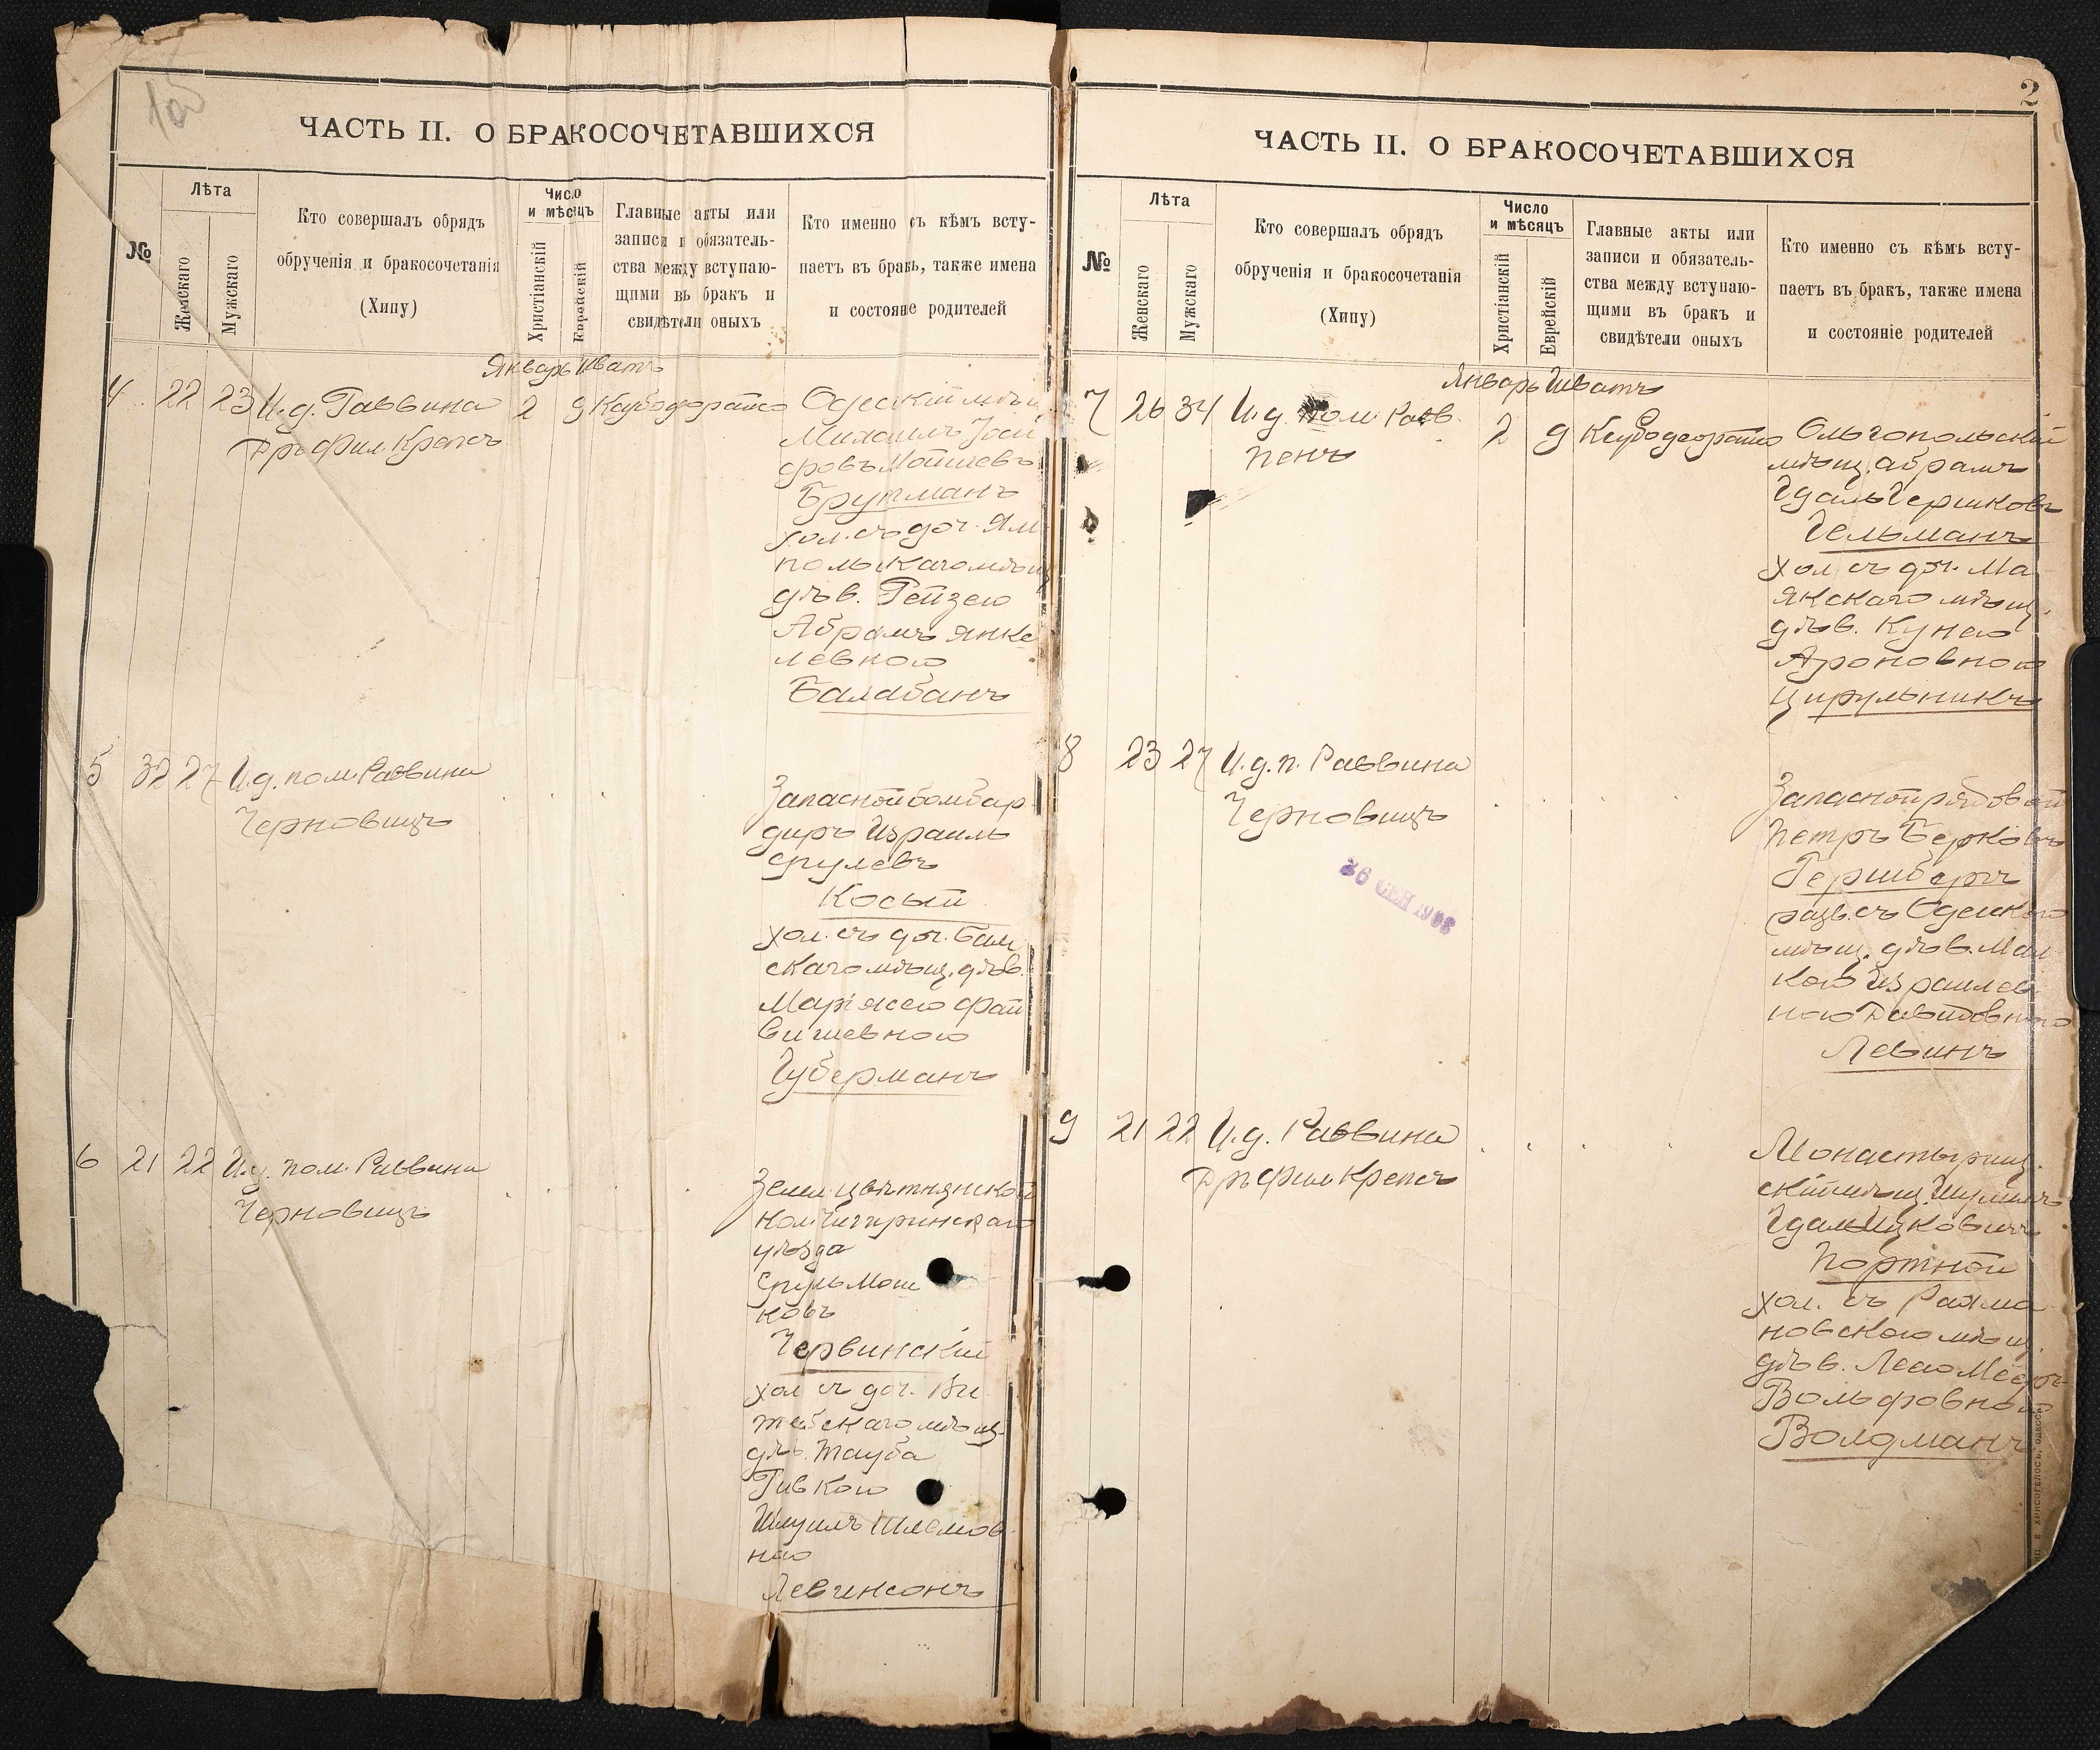 ЧАСТЬ II. О БРАКОСОЧЕТАВШИХСЯ
№
Лѣта
Женскаго
Мужскаго
Кто совершалъ обрядъ
обрученія и бракосочетанія
(Хипу)
Число
и мѣсяцъ
Христіанскій
Еврейскій
Главные акты или
записи и обязатель-
ства между вступаю-
щими въ бракъ и
свидѣтели оныхъ
Кто именно съ кѣмъ всту-
паетъ въ бракъ, также имена
и состояніе родителей
Январь Шватъ
4 22 23 И.д. Раввина 2 9
Дръ фил. Крепсъ
Одескій мѣщ
Михаилъ Іой
Мошковъ
Брутманъ
хол. съ доч. Ям
польскаго мѣщ
дѣв. Рейзею
Абрамъ Янке
левною
Балабанъ
5 32 27 И.д. пом. Раввина
Черновицъ
Запасной бомбар
диръ Израиль
Срулевъ
Косый
хол. съ доч. Бал
скаго мѣщ. дѣв.
Маріясею Фай
вишевною
Губерманъ
6 21 22 И.д. пом. Раввина
Черновицъ
Земл. Цвѣтнянской
кол. Чигиринскаго
уѣзда
Сруль Мош
ковъ
Червинскій
хол. съ доч. Ви
тебскаго мѣщ.
дѣв. Тауба
Ривкою
Шмуилъ Шлемов
ною
Левинсонъ
2
ЧАСТЬ II. О БРАКОСОЧЕТАВШИХСЯ
№
Лѣта
Женскаго
Мужскаго
Кто совершалъ обрядъ
обрученія и бракосочетанія
(Хипу)
Число
и мѣсяцъ
Христіанскій
Еврейскій
Главные акты или
записи и обязатель-
ства между вступаю-
щими въ бракъ и
свидѣтели оныхъ
Кто именно съ кѣмъ всту-
паетъ въ бракъ, также имена
и состояніе родителей
Январь Шватъ
7 26 34 И.д. пом. Равв. 2 9
Пенъ
Ольгопольскій
мѣщ. Абрамъ
Гдаль Гершковъ
Гельманъ
хол. съ доч. Ма
якскаго мѣщ.
дѣв. Кунею
Ароновною
Цирульникъ
8 23 27 И.д. п. Раввина
Черновицъ
26 СЕН 1908
Запасной рядовой
Петръ Берковъ
Гершбергъ
разв. съ Одескаго
мѣщ. дѣв. Мал
кою Израилев
ною Давидовною
Левинъ
9 21 22 И.д. Раввина
Дръ фил. Крепсъ
Монастырищ
скій мѣщ. Шулимъ
Гдаль Ицковичъ
Портной
хол. съ Рахма
новскаго мѣщ.
дѣв. Леею
Вольфовною
Волдманъ